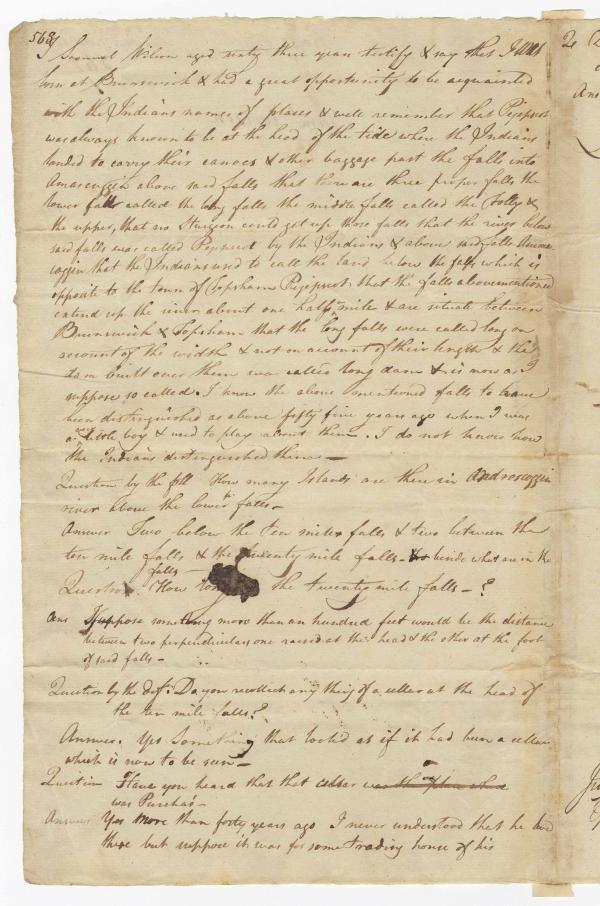 563/
I Samuel Wilson aged sixty three years testify & say that I was
born at Brunswick & had a great opportunity to be acquainted
with the Indians names of places & well remember that Pejepscot
was always known to be at the head of the tide where the Indians
landed to carry their canoes & other baggage past the falls into
Amascoggin above said falls that there are three proper falls the
lower falls called the long falls the middle falls called the Folly &
the upper, that no Sturgeon could get up those falls that the river below
said falls was called Pejepscot by the Indians & above said falls Amas
coggin that the Indians used to call the land below the falls which is
opposite to the town of Topsham Pejepscot, that the falls abovementioned
extend up the river about one half mile & are situate between
Brunswick & Topsham that the long falls were called long on
account of the width & not on account of their length & the
dam built over them was called long dam & is now as I
suppose so called. I know the above mentioned falls to have
been distinguished as above fifty five years ago when I was
a little boy & used to play about them. I do not know how
the Indians distinguished them —
Question by the plf How many Islands are there in Androscoggin
river above the lower falls —
Answer Two below the ten mile falls & two between the
ten mile falls & the twenty mile falls — beside what are in the
falls —
Question. How long the twenty mile falls — ?
Ans I suppose something more than an hundred feet would be the distance
between two perpendiculars one raised at the head & the other at the foot
of said falls —
Question by the def. Do you recollect any thing of a cellar at the head of
the ten mile falls?
Answer. Yes Something that looked as if it had been a cellar
which is now to be seen —
Question Have you heard that that cellar was the place where
was Purchas's —
Answer Yes more than forty years ago I never understood that he lived
there but suppose it was for some trading house of his
2
An